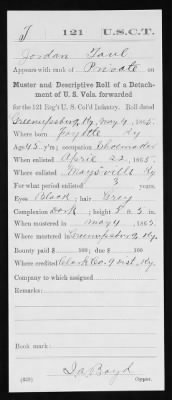 T | 121 | U.S.C.T.
Jordan Taul
Appears with rank of Private on
Muster and Descriptive Roll of a Detach-
ment of U. S. Vols. forwarded
for the 121 Reg't U. S. Col'd Infantry. Roll dated
Greenupsburg, Ky, May 4, 1865.
Where born Fayette Ky
Age 45 y'rs; occupation Shoemaker
When enlisted April 22, 1865.
Where enlisted Maysville Ky
For what period enlisted 3 years.
Eyes Black; hair Grey
Complexion Dark; height 5 ft. 5 in.
When mustered in May 4, 1865.
Where mustered in Greenupsburg, Ky.
Bounty paid $ 100; due $ 100
Where credited Clark Co. 9 Dist. Ky.
Company to which assigned
Remarks:
Book mark:
Boyd
(339) Copyist.